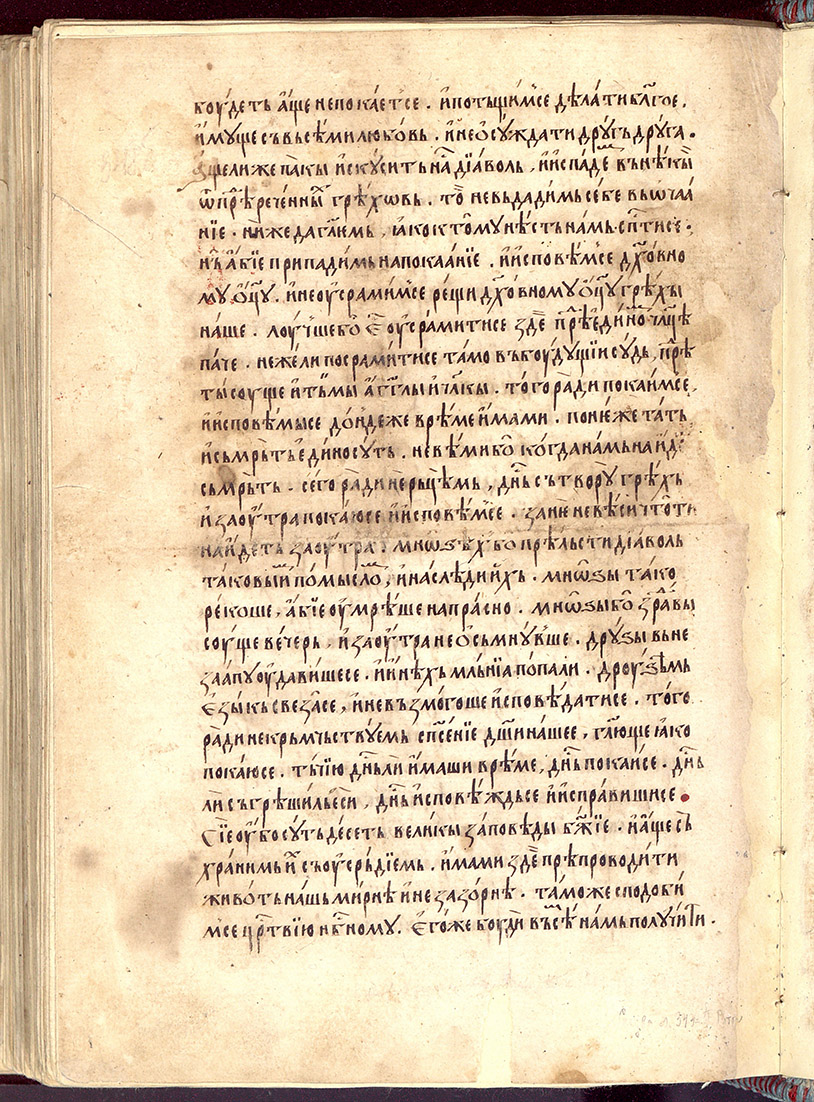 боудеть а҆́ще непока́етсе . и҆потьщи́м͛се дѣ́латиблг҃ое ,
и҆мꙋ́щесъвъсѣ́милюбо́вь . и҆неѻ҆сꙋжда́тидрꙋ́гъдрꙋ́га .
а҆щелижепа́кы и҆скꙋ́ситьнаⷭ҇ дїа́воль , и҆и҆спаде́мⷨ вънѣ́кыⷯ
ѿпрⷤѣрече́нныⷯ грѣ́хѡвь . тоⷣ невьдади́мьсе́бе въѡ҆чаа́
нїе . ниже́даглѥ҃мь , ꙗ҆коктомꙋ́нѣ́стьна́мь сп҃тисе .
нъ҆а́бїе припади́мьнапокаа́нїе . и҆и҆сповѣ́м͛се дх҃о́вно
мꙋѻ҆ц҃ꙋ́ . и҆неоу҆срами́м͛се рещи́дх҃о́вномꙋѻ҆ц҃ꙋ́грѣхы̀
на́ше . лоу́чшебо̀ єⷭ҇ оу҆срами́тисе здѐ прѣⷣѥди́нѣмⷨ чл҃кѡ
па́че . не́желипосрами́тисе та́мо въбоу́дꙋщїисꙋ́дь , прѣⷣ
ты́соуще и҆тьмы̀ а҆́гг҃лы и҆чл҃кы . того̀ра́ди пока́им͛се ,
и҆и҆сповѣ́мысе до́ндеже врѣ́меи҆́мами . поне́же та́ть
и҆съмрть̀ѥди́носꙋть . невѣ́мибо̀ когда̀на́мьна́иде
съмрть̀ . сего̀ ра́ди нерьцѣ́мь , дн҃ьсътво́рꙋгрѣ́хъ
и҆заоу҆́трапока́юсе и҆и҆сповѣ́м͛се . зане́невѣ́сичто́ти
на́идетьзаоу҆́тра . мнѡ́ѕѣхбо̀ прѣльстѝдїа́воль
таковы́мⷨпо́мысломⷨ , и҆наслѣ́дии҆́хъ . мнѡ́ѕы та́ко
реко́ше , а҆́бїе оу҆мрѣ́ше напра́сно . мнѡ́ѕыбо̀ здра́вы
соу́ще вечерь̀ , и҆заоу҆́транеѻ҆сьмнꙋ́вше . дрꙋ́ѕы вьне
заапꙋоу҆дави́шесе . и҆и҆нѣ́хь млъ́нїапопалѝ . дроуѕѣ́мь
є҆зы́кьсвеза́се , и҆невъзмого́шеи҆сповѣ́датисе . того̀
ра́динекрьмьствꙋемь сп҃се́нїе дш҃ина́шее , гл҃юще ꙗ҆́ко
пока́юсе . тъ́їю дн҃ьли и҆́маши врѣ́ме , дн҃ьпока́исе . дн҃ь
лисъгрѣши́льѥсѝ , дн҃ьи҆сповѣ́ждьсе и҆и҆спра́вишисе .
Сїеоу҆́босꙋтьде́сеть вели́кы за́повѣды бж҃їе . и҆а҆́щесъ
храни́мьи҆́х съоу҆срь́дїемь . и҆́мами здѐ прѣпроводи́ти
живо́тьна́шьми́рнѣ и҆незазо́рнѣ . та́може сподоби́
м͛се црⷭ҇твїю нб҃номꙋ . Ѥго́же боу́ди въсѣ́мⷨна́мьполꙋчи́ти .